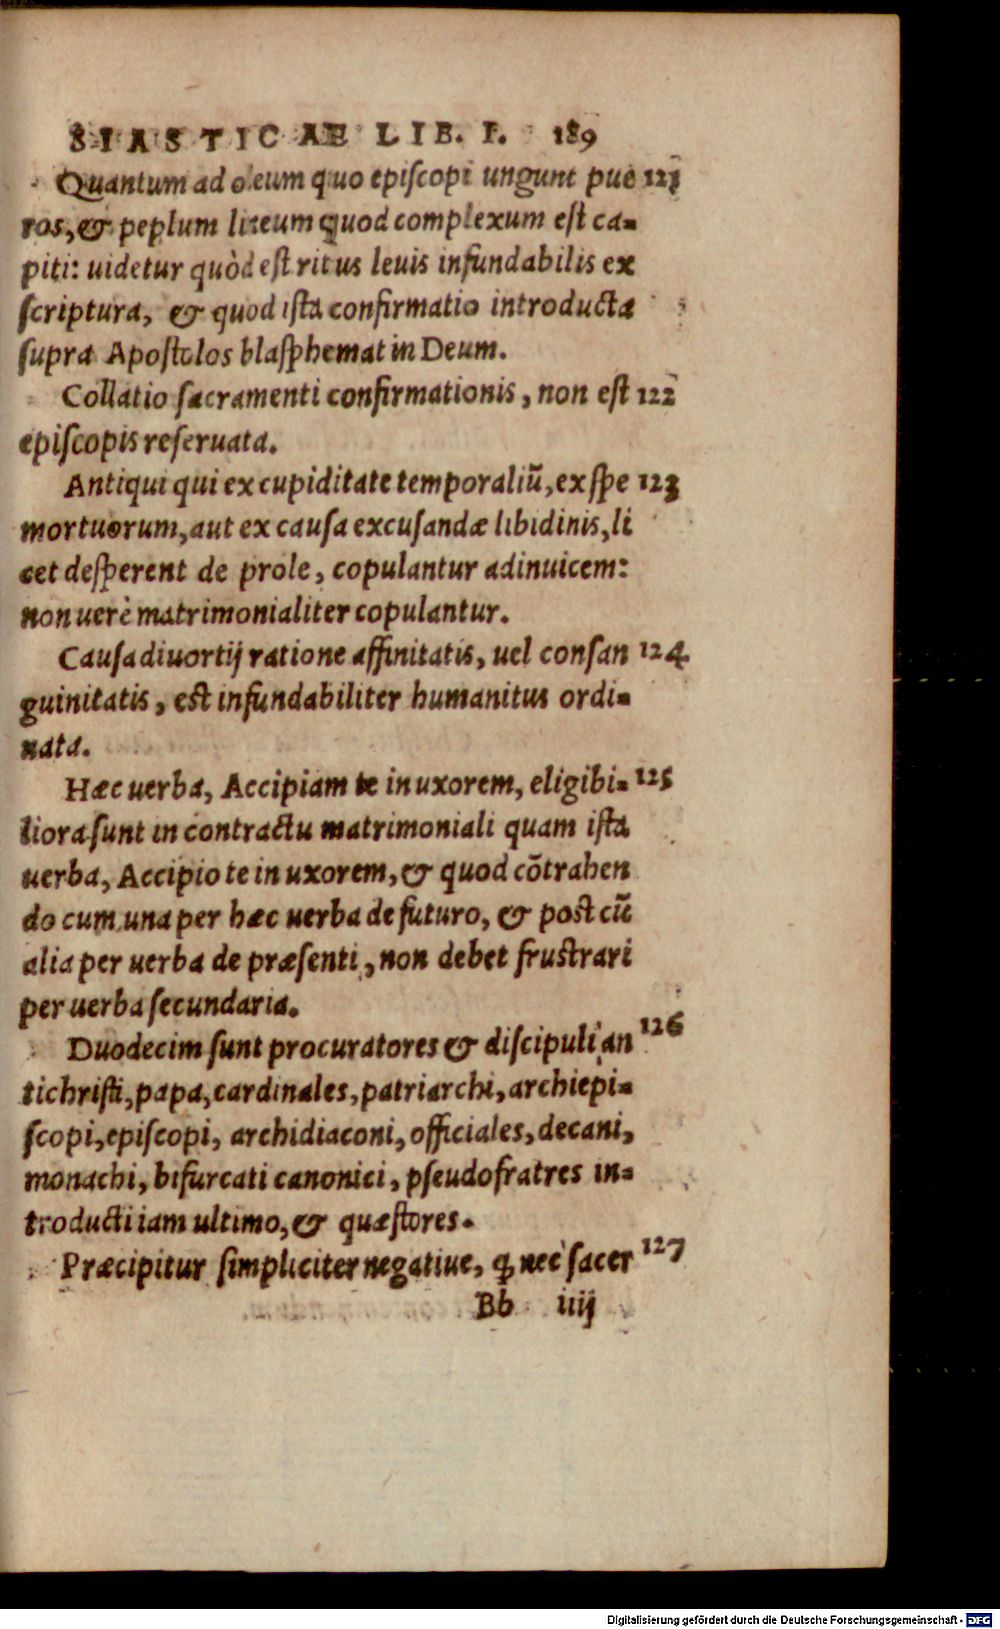 SIASTICAE LIB. I. 189
Quantum ad oleum quo episcopi ungunt pue 121
ros, & peplum lineum quod complexum est ca-
piti: uidetur quòd est ritus leuis infundabilis ex
scriptura, & quod ista confirmatio introducta
supra Apostolos blasphemat in Deum.
Collatio sacramenti confirmationis, non est 122
episcopis reseruata.
Antiqui qui ex cupiditate temporaliũ, ex spe 123
mortuorum, aut ex causa excusandæ libidinis, li
cet desperent de prole, copulantur adinuicem:
non uerè matrimonialiter copulantur.
Causa diuortij ratione affinitatis, uel consan 124
guinitatis, est infundabiliter humanitus ordi-
nata.
Hæc uerba, Accipiam te in uxorem, eligibi- 125
liora sunt in contractu matrimoniali quam ista
uerba, Accipio te in uxorem, & quod cõtrahen
do cum una per hæc uerba de futuro, & post cũ
alia per uerba de præsenti, non debet frustrari
per uerba secundaria.
Duodecim sunt procuratores & discipuli an 126
tichristi, papa, cardinales, patriarchi, archiepi-
scopi, episcopi, archidiaconi, officiales, decani,
monachi, bifurcati canonici, pseudofratres in-
troducti iam ultimo, & quæstores.
Præcipitur simpliciter negatiue, ꝙ nec sacer 127
Bb iiij
Digitalisierung gefördert durch die Deutsche Forschungsgemeinschaft - DFG